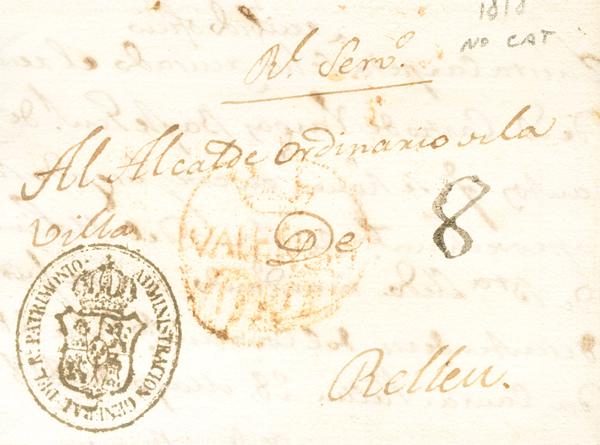 1818
NO CAT
Rl. Servo.
Al Alcalde Ordinario de la
Villa
De
8
VALENCIA
ADMINISTRACION GENERAL DEL R. PATRIMONIO.
Relleu.